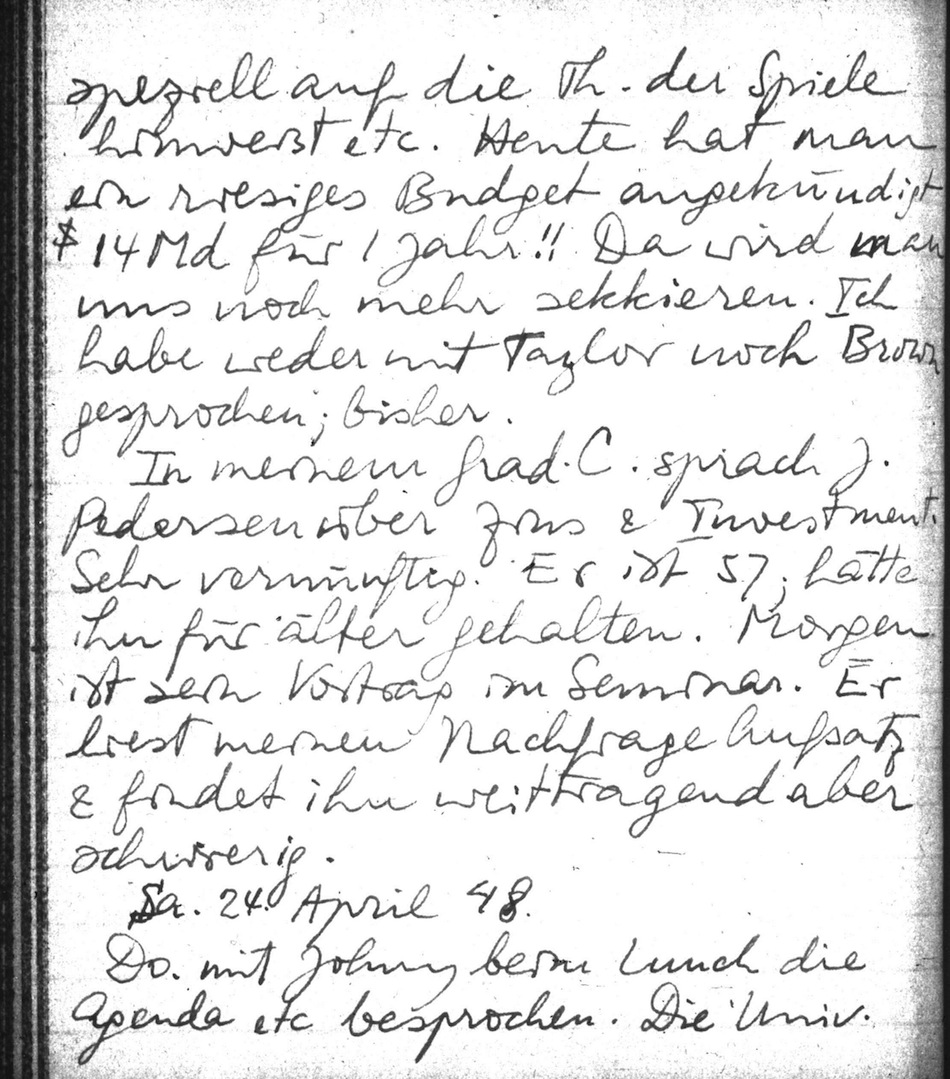 speziell auf die Th. der Spiele
hinweist etc. Heute hat man
ein riesiges Budget angekündigt
$ 14 Md für 1 Jahr!! Da wird man
uns noch mehr sekkieren. Ich
habe weder mit Taylor noch Brown
gesprochen; bisher.
In meinem Grad. C. sprach J.
Pedersen über Zins & Investment.
Sehr vernünftig. Er ist 57; hätte
ihn für älter gehalten. Morgen
ist sein Vortrag im Seminar. Er
liest meinen Nachfrage Aufsatz
& findet ihn weittragend aber
schwierig.
Sa. 24. April 48.
Do. mit Johnny beim Lunch die
Agenda etc besprochen. Die Univ.